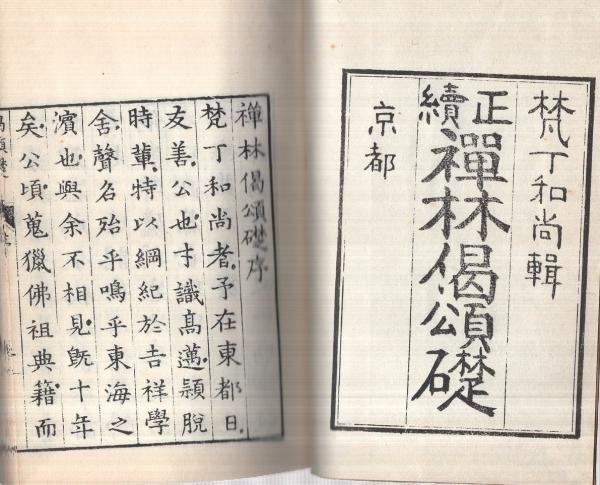 梵丁和尚輯
正續
禪林偈頌礎
京都
禪林偈頌礎序
梵丁和尚者予在東都日
友善公也才識高邁頴脫
時輩特以綱紀於吉祥學
舍聲名殆乎鳴乎東海之
濱也與余不相見旣十年
矣公頃蒐獵佛祖典籍而